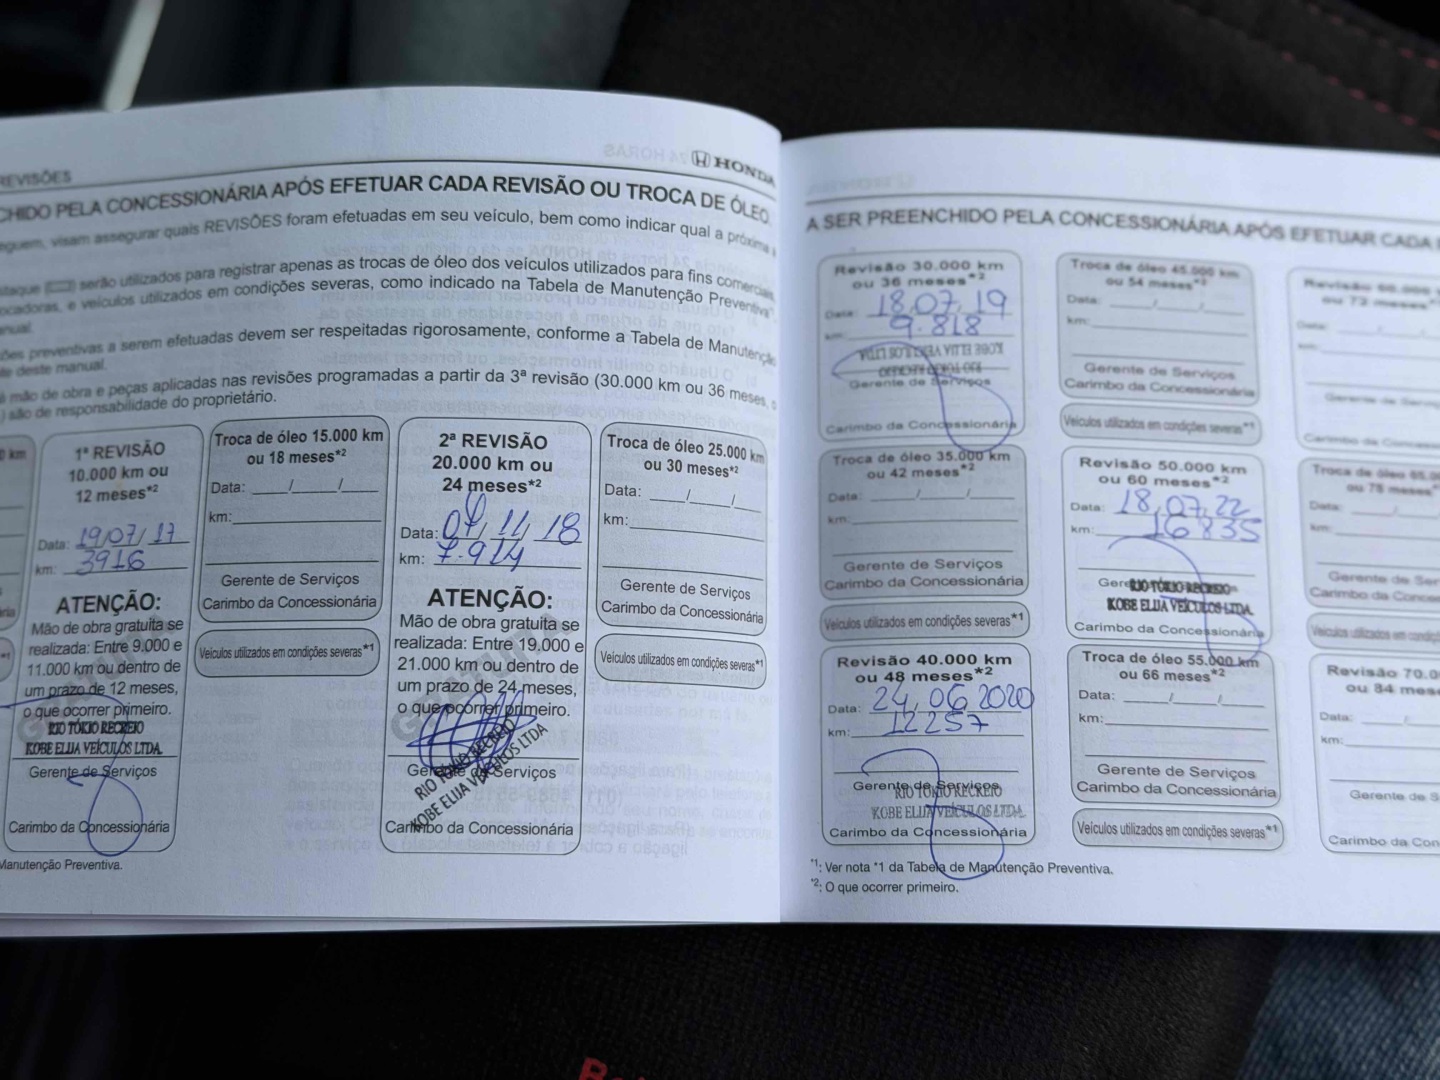 REVISÕES
HONDA
CHIDO PELA CONCESSIONÁRIA APÓS EFETUAR CADA REVISÃO OU TROCA DE ÓLEO
eguem, visam assegurar quais REVISÕES foram efetuadas em seu veículo, bem como indicar qual a próxima a
serão utilizados para registrar apenas as trocas de óleo dos veículos utilizados para fins comerciais
ocadoras, e veículos utilizados em condições severas, como indicado na Tabela de Manutenção Preventiva
anual.
sões preventivas a serem efetuadas devem ser respeitadas rigorosamente, conforme a Tabela de Manutenção
deste manual.
mão de obra e peças aplicadas nas revisões programadas a partir da 3ª revisão (30.000 km ou 36 meses, o
) são de responsabilidade do proprietário.
1ª REVISÃO
10.000 km ou
12 meses*2
Data: 19/07/17
km: 3916
ATENÇÃO:
Mão de obra gratuita se
realizada: Entre 9.000 e
11.000 km ou dentro de
um prazo de 12 meses,
o que ocorrer primeiro.
RIO TÓKIO RECREIO
KOBE ELIJA VEÍCULOS LTDA.
Gerente de Serviços
Carimbo da Concessionária
Manutenção Preventiva.
Troca de óleo 15.000 km
ou 18 meses*2
Data: ____/____/____
km:
Gerente de Serviços
Carimbo da Concessionária
Veículos utilizados em condições severas*1
2ª REVISÃO
20.000 km ou
24 meses*2
Data: 07/11/18
km: 7.914
ATENÇÃO:
Mão de obra gratuita se
realizada: Entre 19.000 e
21.000 km ou dentro de
um prazo de 24 meses,
o que ocorrer primeiro.
Gerente de Serviços
RIO TÓKIO RECREIO
KOBE ELIJA VEÍCULOS LTDA
Carimbo da Concessionária
Troca de óleo 25.000 km
ou 30 meses*2
Data: ____/____/____
km:
Gerente de Serviços
Carimbo da Concessionária
Veículos utilizados em condições severas*1
A SER PREENCHIDO PELA CONCESSIONÁRIA APÓS EFETUAR CADA
Revisão 30.000 km
ou 36 meses*2
Data: 18/07/19
km: 9.818
KOBE ELIJA VEÍCULOS LTDA
RIO TÓKIO RECREIO
Gerente de Serviços
Carimbo da Concessionária
Troca de óleo 35.000 km
ou 42 meses*2
Data: ____/____/____
km:
Gerente de Serviços
Carimbo da Concessionária
Veículos utilizados em condições severas*1
Revisão 40.000 km
ou 48 meses*2
Data: 24/06/2020
km: 12257
Gerente de Serviços
RIO TÓKIO RECREIO
KOBE ELIJA VEÍCULOS LTDA.
Carimbo da Concessionária
Troca de óleo 45.000 km
ou 54 meses*2
Data: ____/____/____
km:
Gerente de Serviços
Carimbo da Concessionária
Veículos utilizados em condições severas*1
Revisão 50.000 km
ou 60 meses*2
Data: 18/07/22
km: 16835
RIO TÓKIO RECREIO
KOBE ELIJA VEÍCULOS LTDA.
Carimbo da Concessionária
Troca de óleo 55.000 km
ou 66 meses*2
Data: ____/____/____
km:
Gerente de Serviços
Carimbo da Concessionária
Veículos utilizados em condições severas*1
ou 72 meses
Carimbo da Concessionária
Troca de óleo 65.0
ou 78 meses
Data:
km:
Gerente de Ser
Carimbo da Conce
Veículos utilizados em condiç
Revisão 70.0
ou 84 mese
Data:
km:
Gerente de S
Carimbo da Con
*1: Ver nota *1 da Tabela de Manutenção Preventiva.
*2: O que ocorrer primeiro.